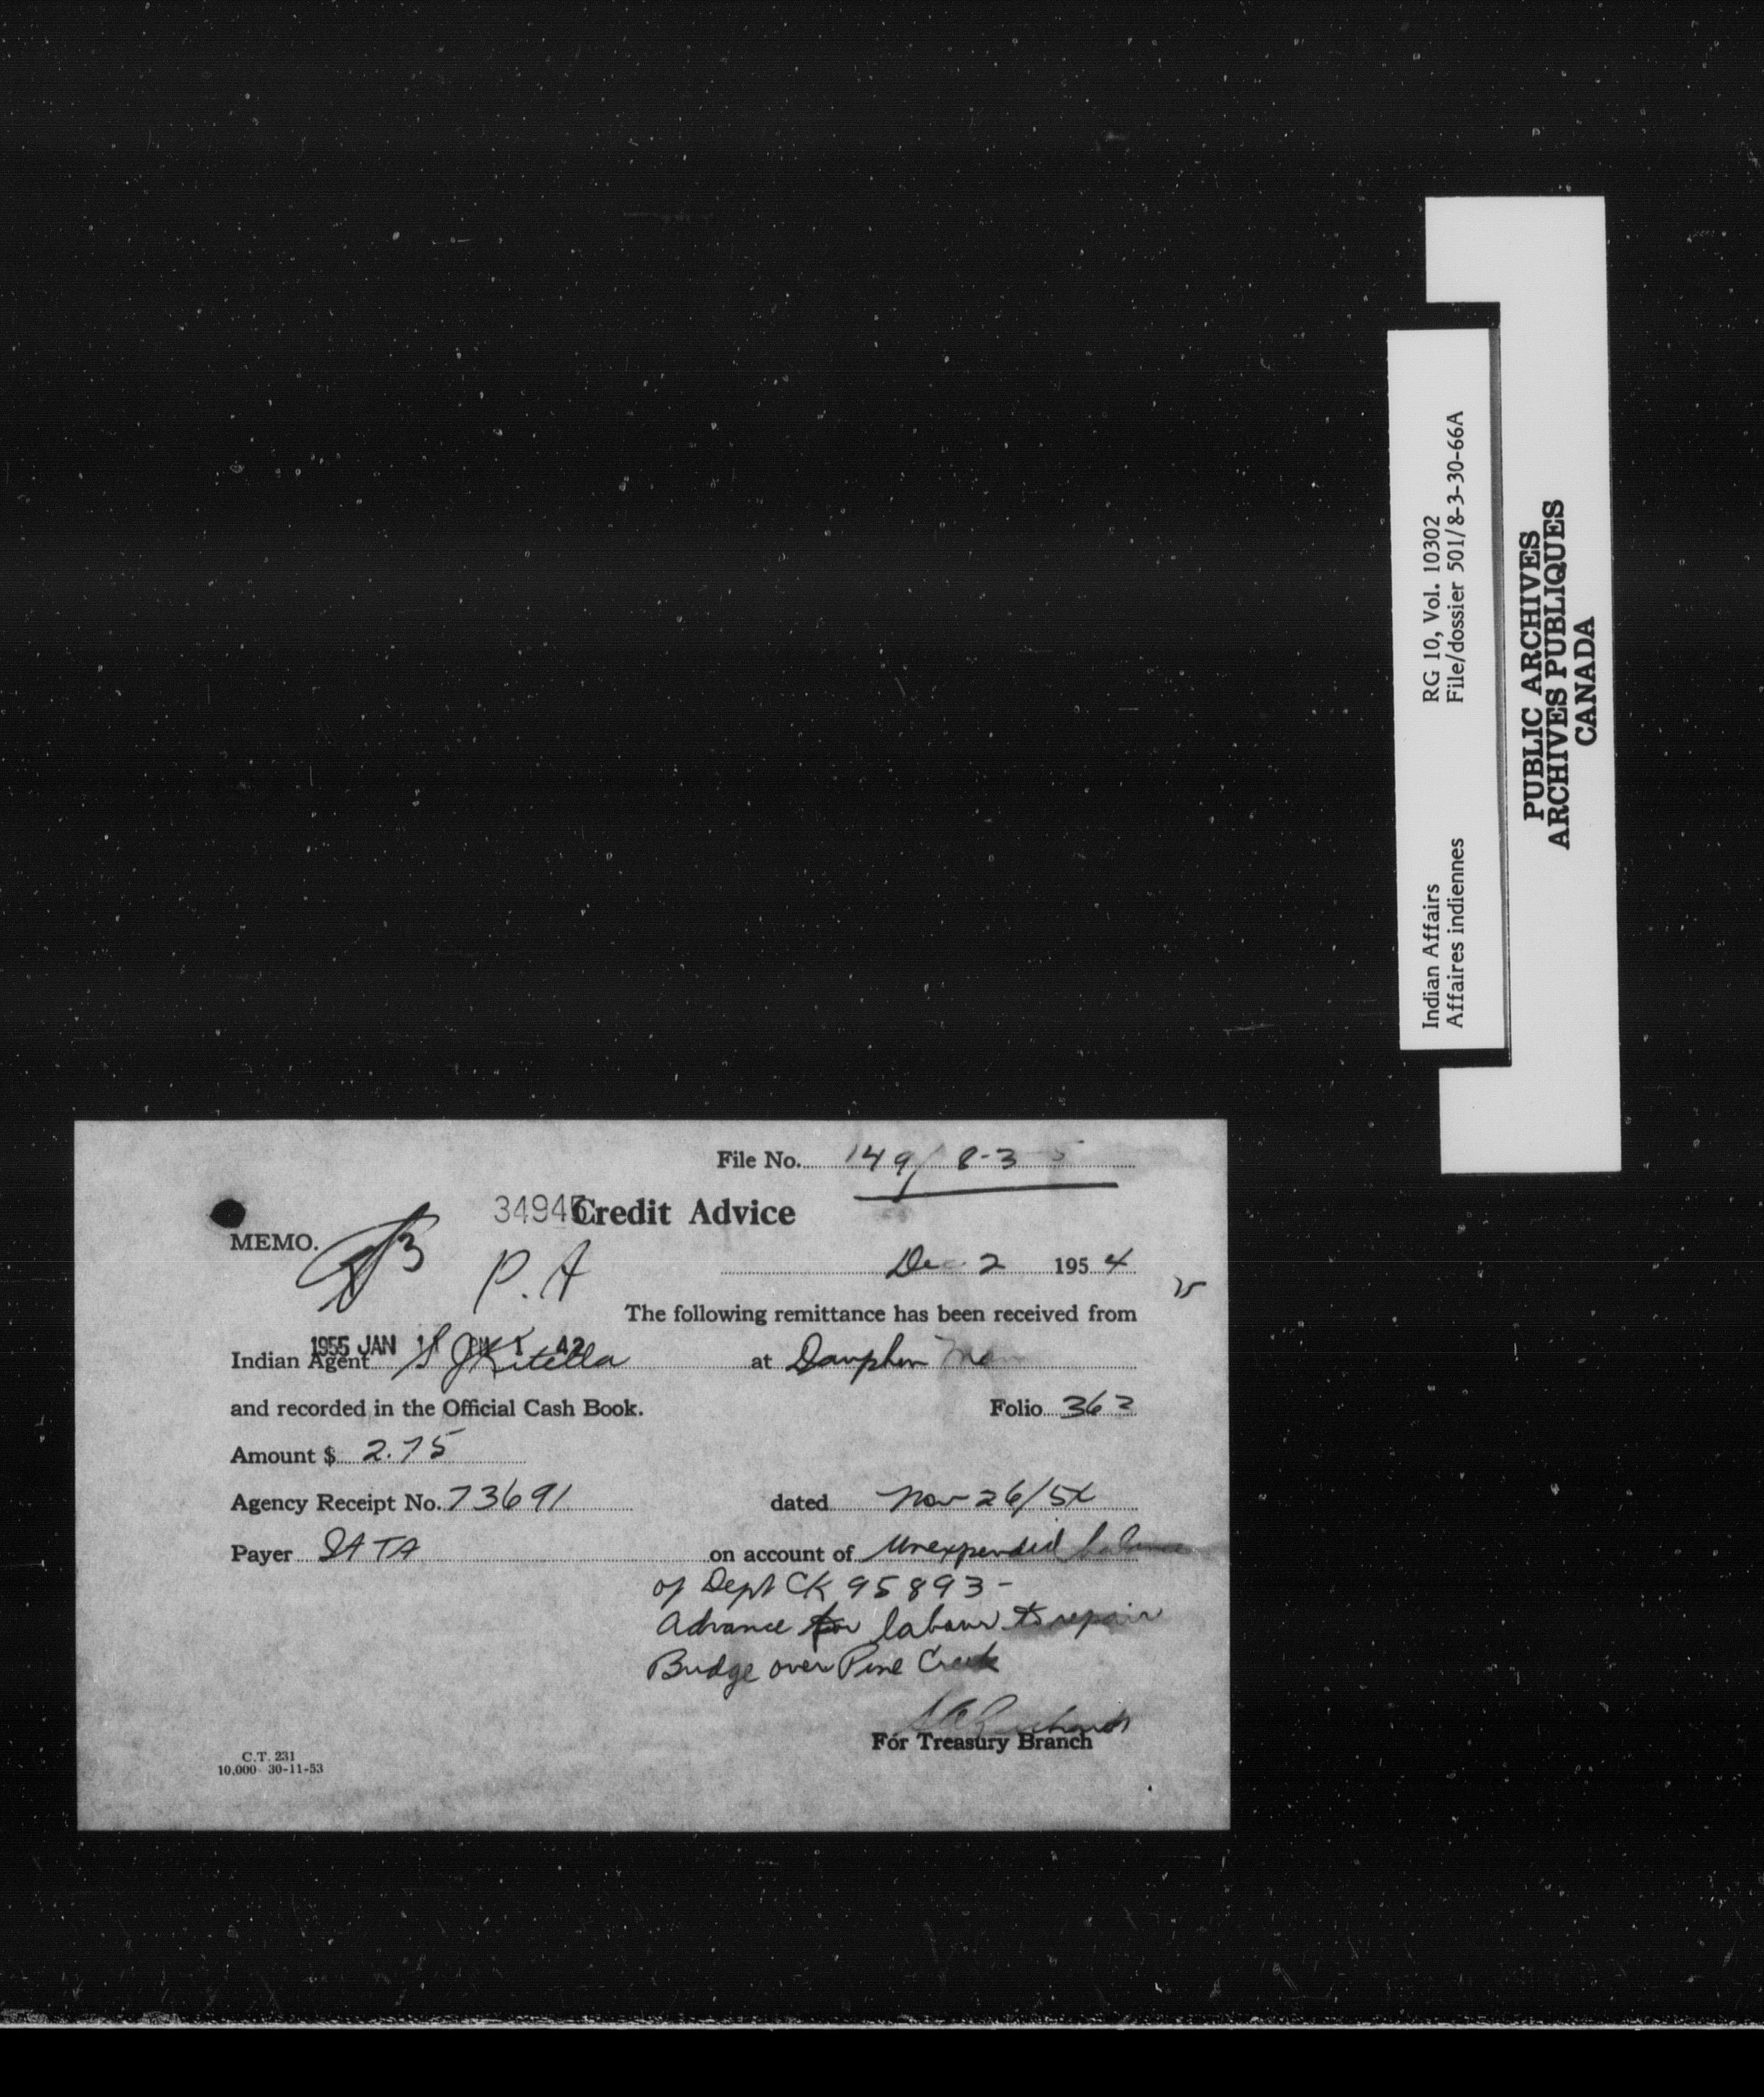 File No. 149/ 8-3
34945 Credit Advice
MEMO.
P. A
Dec 2 1954
The following remittance has been received from
1955 JAN 11 PM 1 42
Indian Agent S J Kitella at Dauphin Man
and recorded in the Official Cash Book. Folio 362
Amount $ 2.75
Agency Receipt No. 73691 dated Nov 26/54
Payer IATA on account of Unexpended balance
of Dept CK 95893-
Advance for labour to repair
Bridge over Pine Creek
For Treasury Branch
C.T. 231
10,000 30-11-53
Indian Affairs RG 10, Vol. 10302
Affaires indiennes File/dossier 501/8-3-30-66A
PUBLIC ARCHIVES
ARCHIVES PUBLIQUES
CANADA